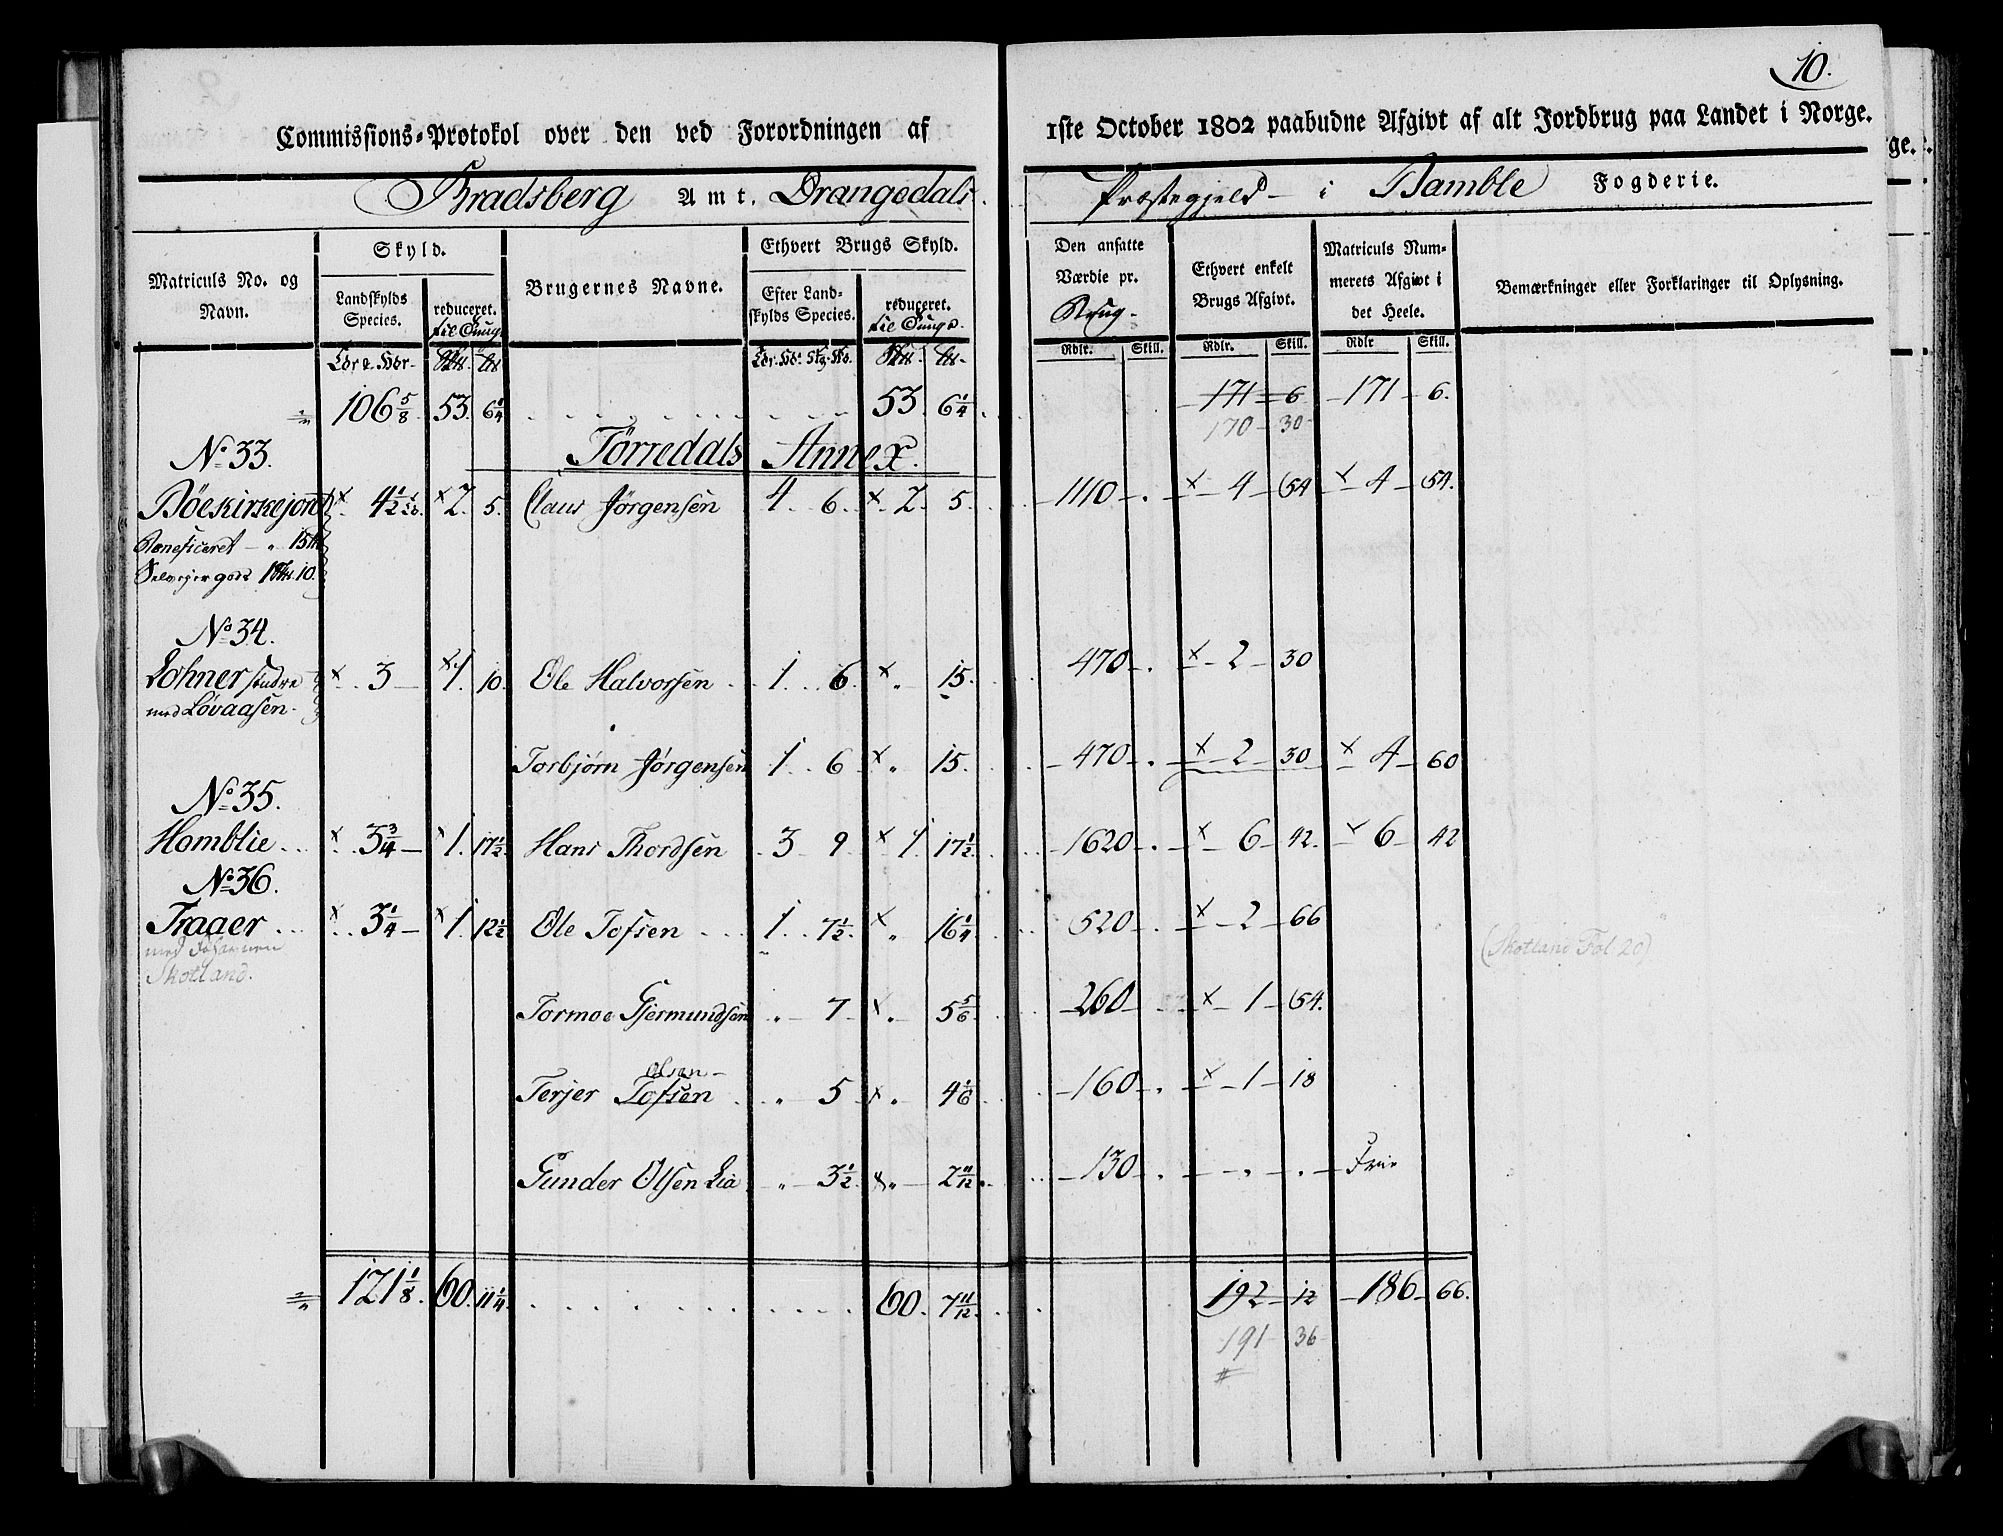 10.
Commissions-Protokol over den ved Forordningen af 1ste October 1802 paabudne Afgivt af alt Jordbrug paa Landet i Norge.
Bradsberg Amt. Drangedals Præstegjeld i Bamble Fogderie.
Matriculs No. og Navn.
Skyld.
Landskylds Species.
reduceret. til Tunge
Brugernes Navne.
Ethvert Brugs Skyld.
Efter Landskylds Species.
reduceret. til Tunge
Den ansatte Værdie pr. Brug
Ethvert enkelt Brugs Afgivt.
Matriculs Nummerets Afgivt i det Heele.
Bemærkninger eller Forklaringer til Oplysning.
Rdlr. Skill. Rdlr. Skill. Rdlr Skill.
106 5/8 53. 6 1/4 53 6 1/4 171 6 171 6.
170 30
Tørredals Annex.
No 33.
Böekirkejord × 4 1/2 × 2. 5. Claus Jørgensen 4 6 × 2 5 1110 × 4 54 × 4 54.
Beneficeret 15
Selveyergods 1 10.
No 34.
Lohner søndre × 3 × 1. 10. Ole Halvorsen 1 6 × 15. 470 × 2 30
med Lovaasen
Torbjørn Jørgensen 1 6 × 15. 470 × 2 30 × 4 60
No 35.
Homblie × 3 3/4 × 1. 17 1/2 Hans Thordsen 3 9 × 1. 17 1/2 1620 × 6 42. × 6 42
No 36.
Traaer × 3 1/4 × 1. 12 1/2 Ole Tofsen 1 7 1/2 × 16 1/4 520 × 2 66
med
Skotland. (Skotland Fol 20)
Tormoe Gjermundsen 7 × 5 5/6 260 × 1 54.
olsen
Terjer Tofsen 5 × 4 1/6 160 × 1 18
Gunder Olsen Lia 3 1/2 × 2 11/12 130 Frie
121 1/8 60. 11 1/4 60. 7 11/12 192 12 186 66.
191 36
#